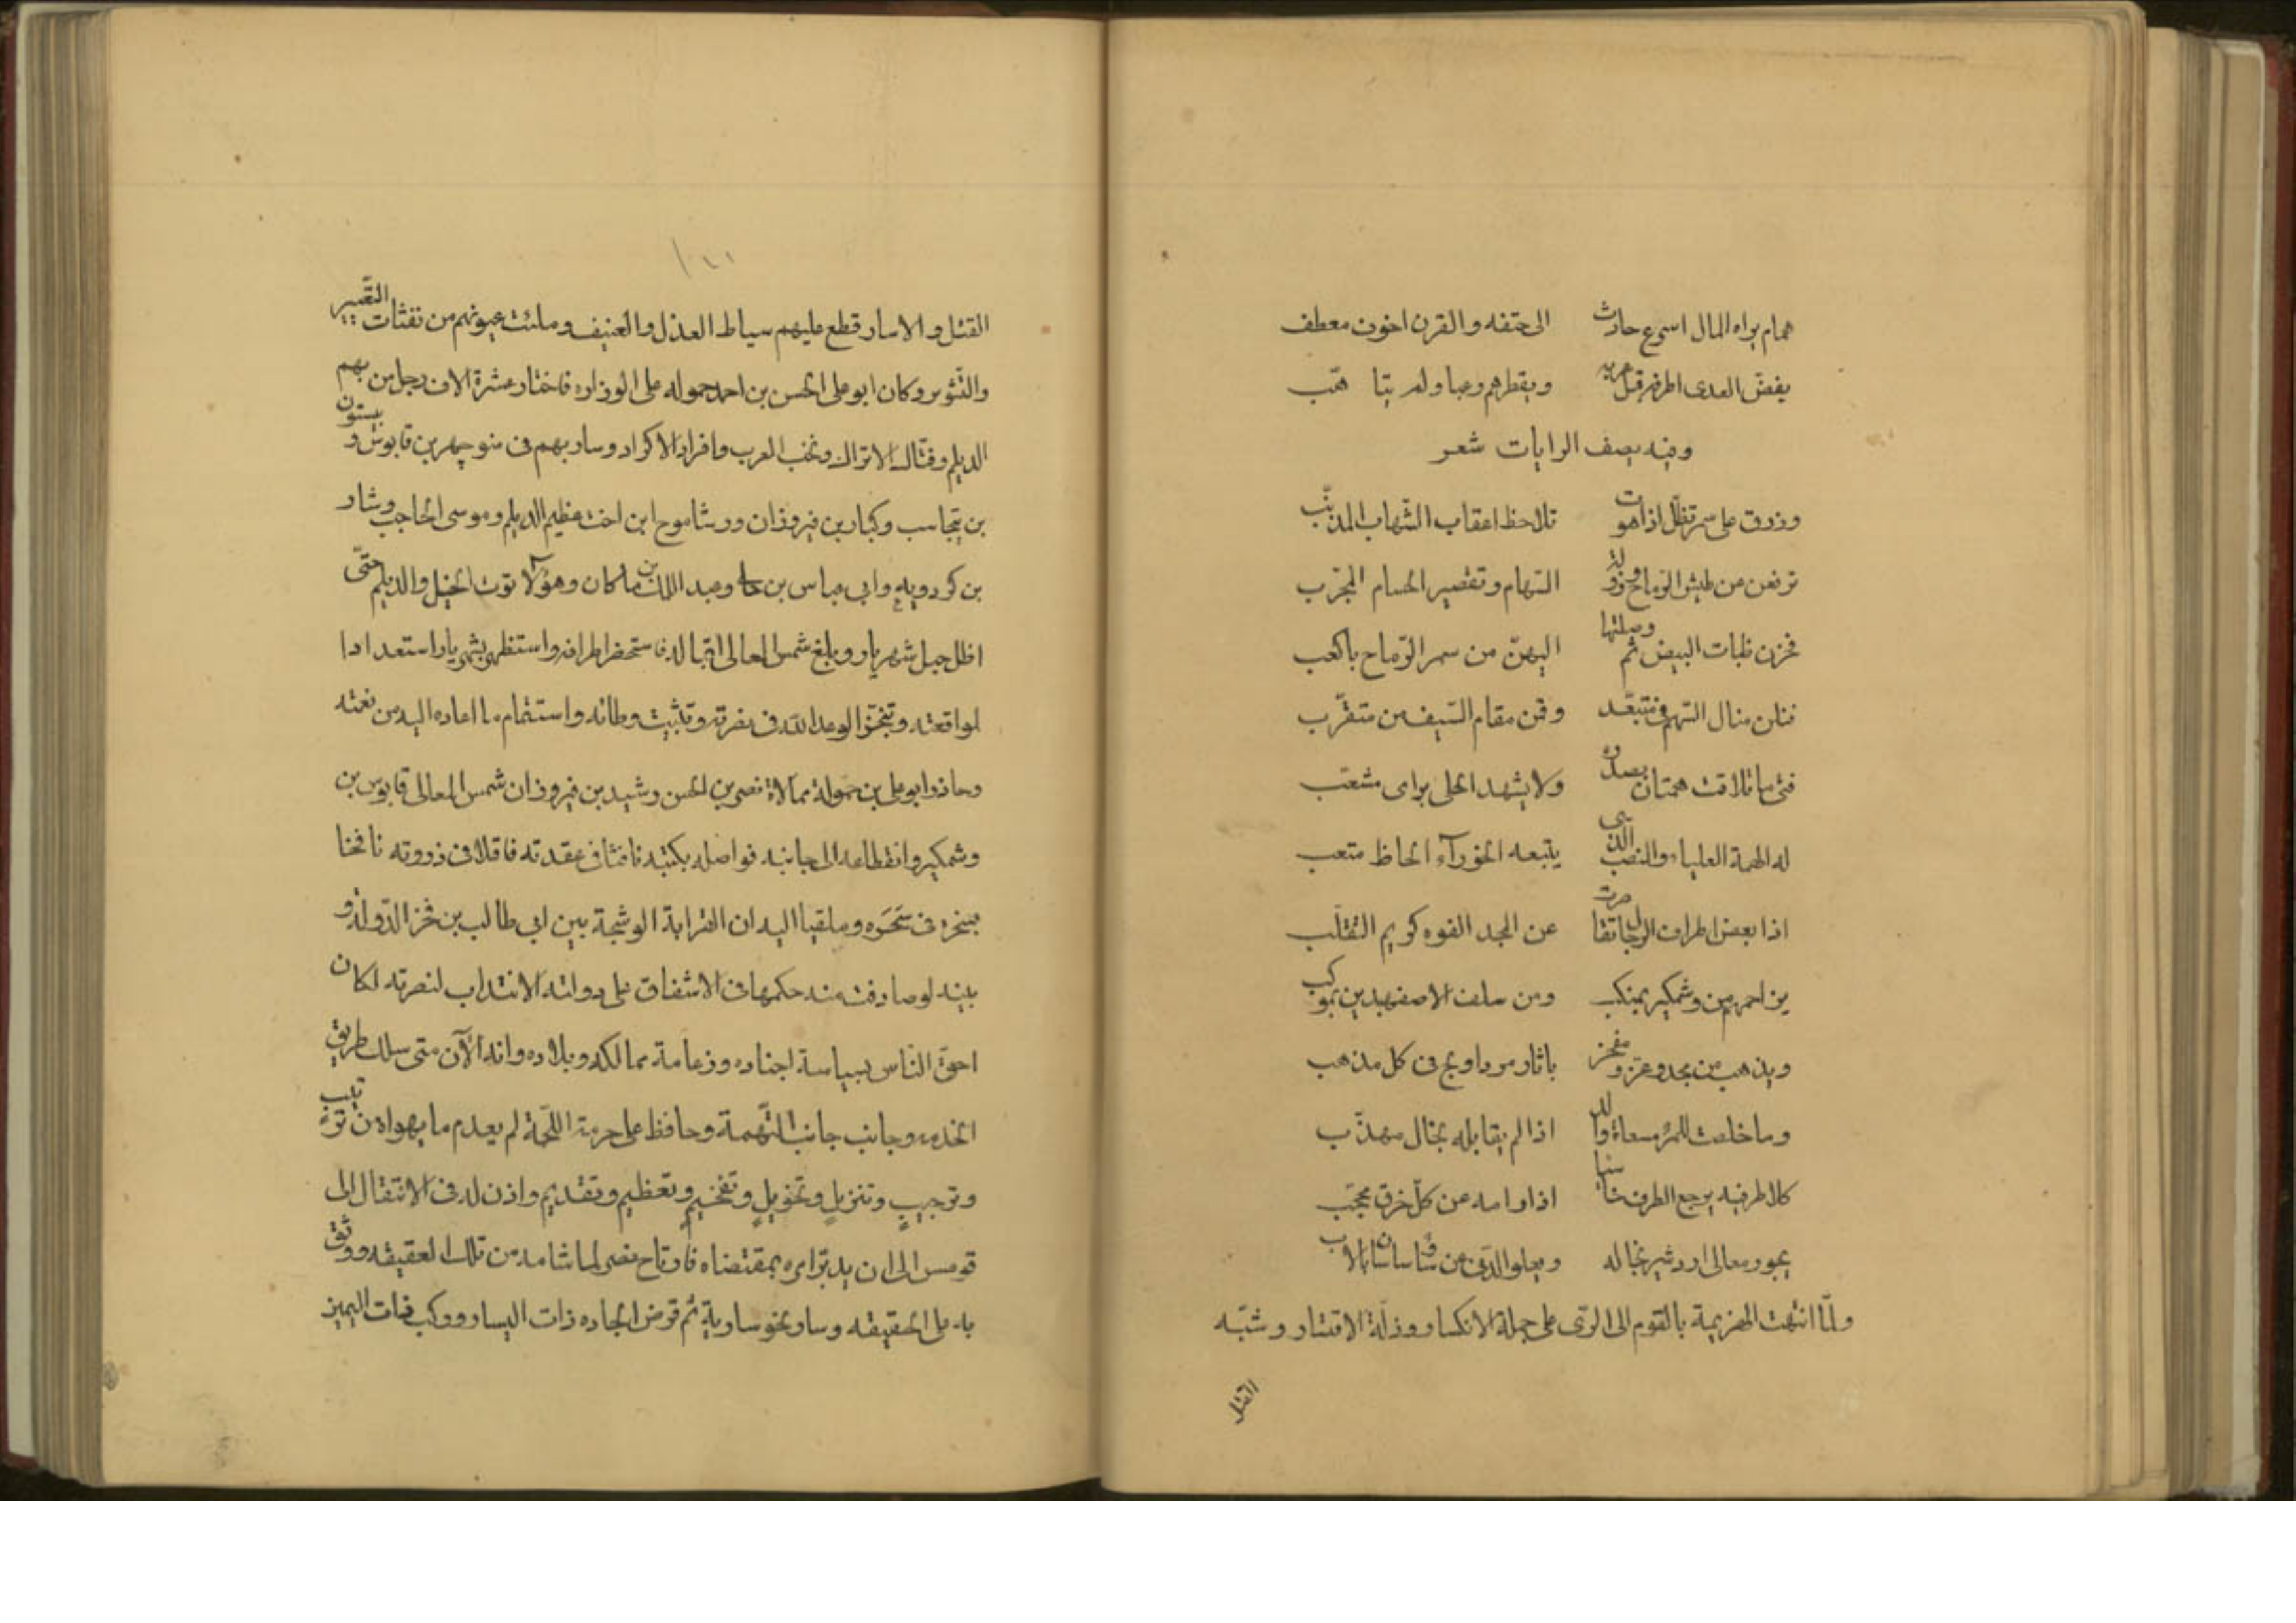 همام يراه المال اسرع حادث الى حتفه والقرن اخون معطف
يفض العدى اطرافه قبل حربه ويقطرهم رعبا ولم يتأهّب
وفيه يصف الرايات شعر
وزرق على سمر تظلّ اذا هوت تلاحظ اعقاب الشّهاب المذنّب
ترفعن من طيش الرّماح وزولة السّهام وتقصير الحسام المجرّب
فحزن ظبات البيض ثم وصلتها اليهنّ من سمر الرّماح باكعب
فنلن منال السّهم فى متبعّد وقمن مقام السّيف من متقرّب
فتى ما تلاقت همتان بصدره ولا يشهد الجلى براى مشعّب
له الهمة العلياء والمنصب الذى يتبعه الجوزآء الحاظ متعب
اذا بعض اطراف الرجال تقاصرت عن المجد الفوه كريم التقلّب
يزاحم من وشمكير بمنكب ومن سلف الاصفهبدين بموكب
ويذهب من مجد وعز ومفخر باثار مرداويج فى كل مذهب
وما خلصت للمرء مسعاة والد اذا لم يقابله بخال مهذّب
كلا طرفيه يرجع الطرف خاسيا اذا رامه عن كلّ خرق محجّب
يحوز معالى اردشير بخاله ويعلو الدّنى عن شأو ساسان بالاب
ولمّا انتهت الهزيمة بالقوم الى الرّى على جملة الانكسار وذلّة الاقتسار وشبّه
القتل
١٢١
القتل والاسار قطع عليهم سياط العذل والعنيف وملئت عيونهم من نفثات التعيير
والتّثوير وكان ابو على الحسن بن احمد حموله على الوزاره فاختار عشرة الاف رجل من بهم
الديلم وفتّاك الاتراك ونخب العرب وافراد الاكراد وسار بهم فى منوجهر بن قابوس و بيستون
بن تيجاسب وكنار بن فيروزان ورشاموج ابن اخت عظيم الديلم وموسى الحاجب وشار
بن كردويه وابى عباس بن جا وعبد الملك بن ماكان وهؤلآ توت الخيل والديلم حتّى
اظل جبل شهريار وبلغ شمس المعالى اقباله فاستحضر اطرافه واستظهر بشهريار استعدادا
لمواقعته وتنجّز الوعد اللّه فى نصرته وتثبيت وطائه واستتمام ما اعاده اليه من نعمته
وحاذر ابو على بن حمولة ممالاة نصر بن الحسن وشيد بن فيروزان شمس المعالى قابوس بن
وشمكير وانقطاعه الى جانبه فواصله بكتبه نافثا فى عقدته فاتلا فى ذروته نافخا
بسحره فى سحره وملقيا اليه ان القرابة الوشجة بين ابى طالب بن فخر الدّولة و
بينه لو صادفت منه حكمها فى الاشفاق على دولته الانتداب لنصرته لكان
احقّ النّاس بسياسة اجناده وزعامة ممالكه وبلاده وانه الآن متى سلك طريق
الخدمه وجانب جانب التّهمة وحافظ على حرمة اللّحمة لم يعدم ما يهواه من ترتيب
وترجيبٍ وتنزيلٍ وتخويلٍ وتفخيمٍ وتعظيم وتقديم واذن له فى الانتقال الى
قومس الى ان يدبّر امره بمقتضاه فارتاح نصر لما شامه من تلك العقيقه ووثق
به على الحقيقه وسار نحو سارية ثم قرض الجاده ذات اليسار وركب ذات اليمين